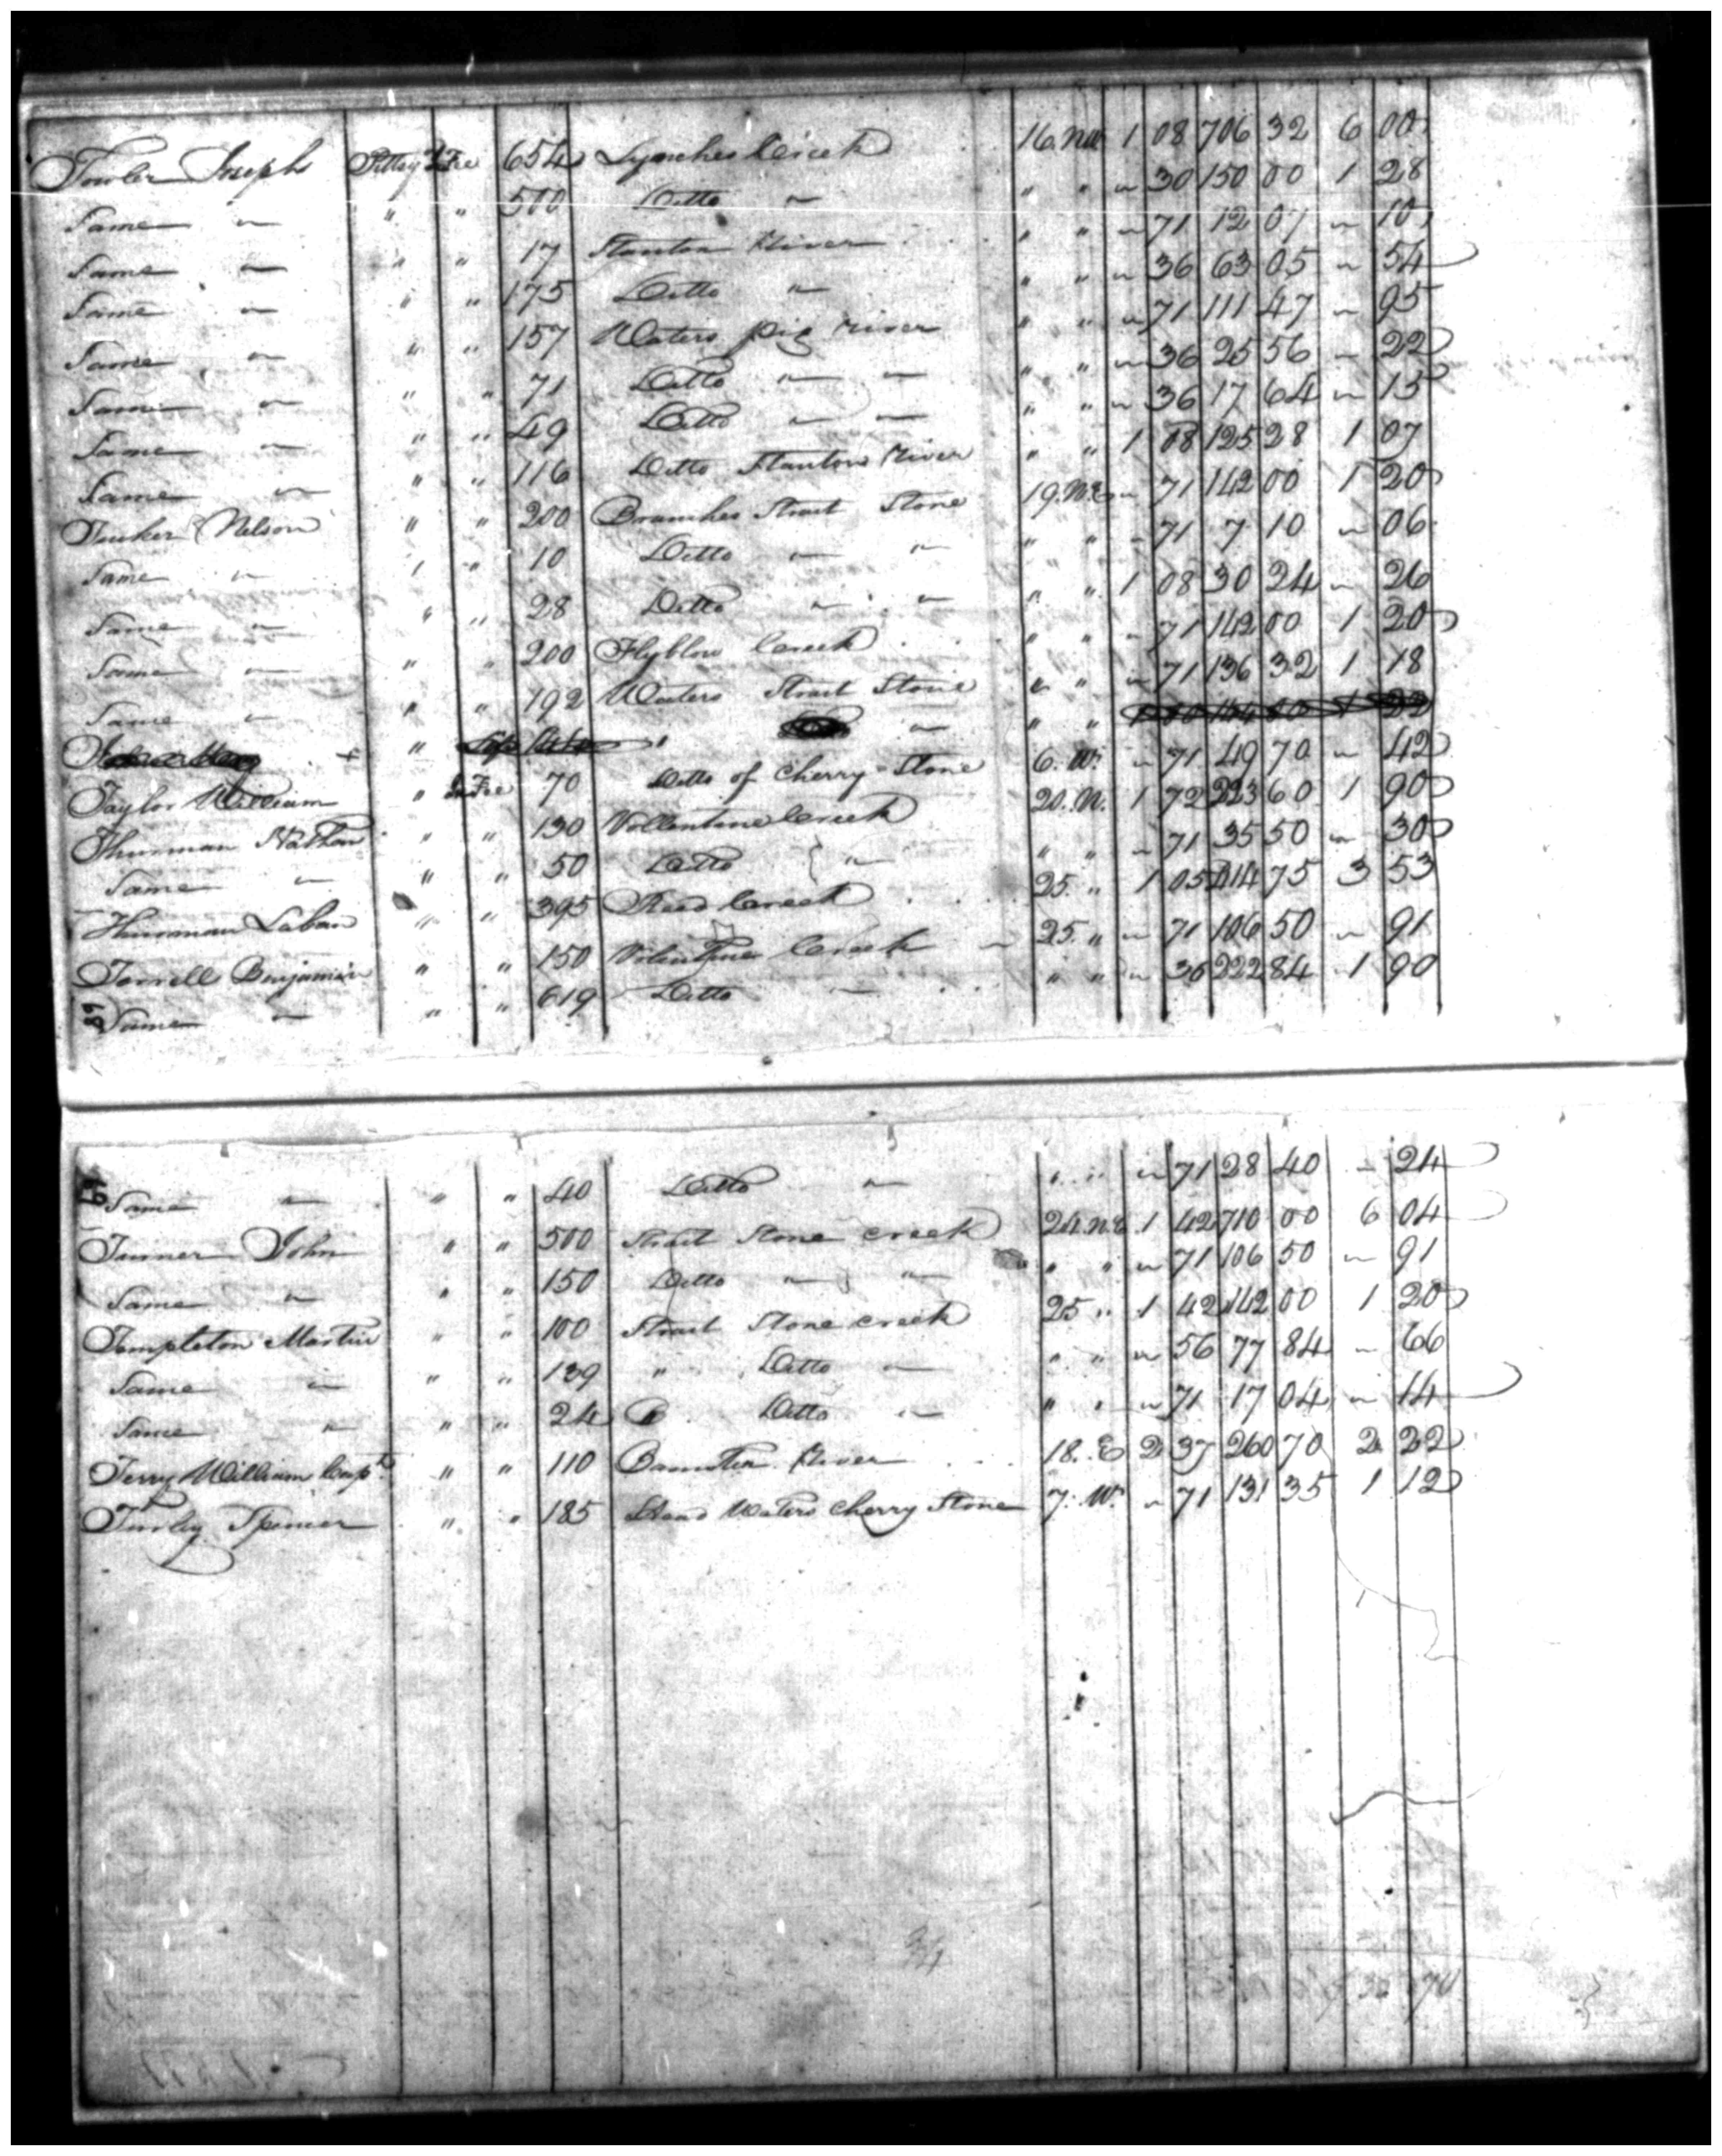 Towler Joseph Pittsyl. in Fee 654 Lynches Creek 16. NW 1 08 706 32 6 00
Same " " " 500 Ditto " " " " 30 150 00 1 28
Same " " " 17 Stanton River " " " 71 12 07 " 10
Same " " " 175 Ditto " " " " 36 63 05 " 54
Same " " " 157 Waters pig river " " " 71 111 47 " 95
Same " " " 71 Ditto " " " " " 36 25 56 " 22
Same " " " 49 Ditto " " " " " 36 17 64 " 15
Same " " " 116 Ditto Stanton River " " 1 08 125 28 1 07
Tucker Nelson " " 200 Branches Strait Stone 19. N.E " 71 142 00 1 20
Same " " " 10 Ditto " " " " " 71 7 10 " 06
Same " " " 28 Ditto " " " " 1 08 30 24 " 26
Same " " " 200 Flyblow Creek " " " 71 142 00 1 20
Same " " " 192 Waters Strait Stone " " " 71 136 32 1 18
Taylor William " in Fee 70 Ditto of Cherry-Stone 6. W. " 71 49 70 " 42
Thurman Nathan " " 130 Vollentine Creek 20. N. 1 72 223 60 1 90
Same " " " 50 Ditto " " " " 71 35 50 " 30
Thurman Laban " " 395 Reed Creek 25. " 1 05 414 75 3 53
Terrell Benjamin " " 150 Volentine Creek " 25. " " 71 106 50 " 91
Same " " " 619 Ditto " " " " 36 222 84 1 90
Same " " " 40 Ditto " " " " 71 28 40 " 24
Turner John " " 500 Strait Stone Creek 24. N.E 1 42 710 00 6 04
Same " " " 150 Ditto " " " " " 71 106 50 " 91
Templeton Martin " " 100 Strait Stone creek 25 " 1 42 142 00 1 20
Same " " " 139 " Ditto " " " " 56 77 84 " 66
Same " " " 24 Ditto " " " " 71 17 04 " 14
Terry William Capt. " " 110 Bannister River 18. E 2 37 260 70 2 22
Turley Spencer " " 185 Head Waters Cherry Stone 7. W. " 71 131 35 1 12